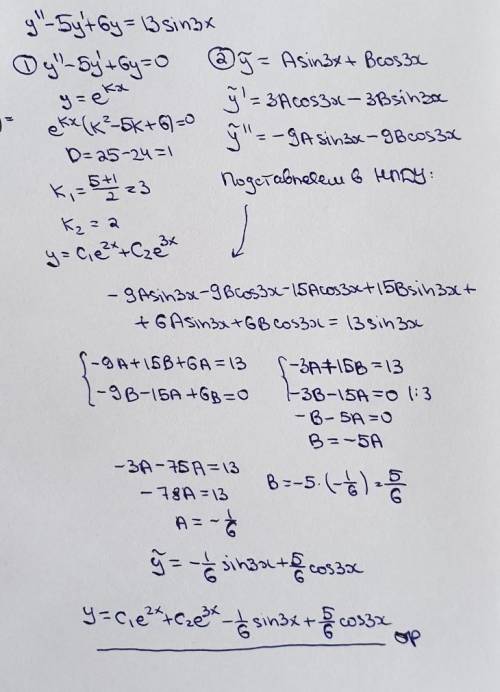 y''-5y'+6y=13sin3x
① y''-5y'+6y=0
y=e^{kx}
e^{kx}(k²-5k+6)=0
D=25-24=1
k₁=\frac{5+1}{2}=3
k₂=2
y=C₁e^{2x}+C₂e^{3x}
② ỹ=Asin3x+Bcos3x
ỹ'=3Acos3x-3Bsin3x
ỹ''=-9Asin3x-9Bcos3x
Подставляем в НЛДУ:
-9Asin3x-9Bcos3x-15Acos3x+15Bsin3x+
+6Asin3x+6Bcos3x=13sin3x
{-9A+15B+6A=13
-9B-15A+6B=0
{-3A+15B=13
-3B-15A=0 |:3
-B-5A=0
B=-5A
-3A-75A=13
-78A=13
A=-\frac{1}{6}
B=-5·(-\frac{1}{6})=\frac{5}{6}
ỹ=-\frac{1}{6}sin3x+\frac{5}{6}cos3x
y=C₁e^{2x}+C₂e^{3x}-\frac{1}{6}sin3x+\frac{5}{6}cos3x